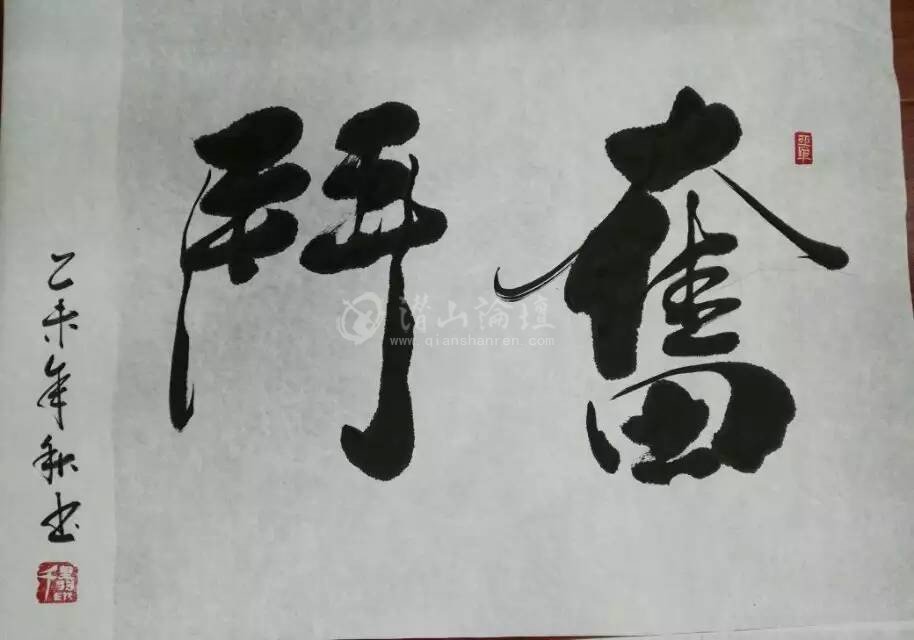 奮鬥
乙未年秋书
潜山論壇
www.qianshanren.com